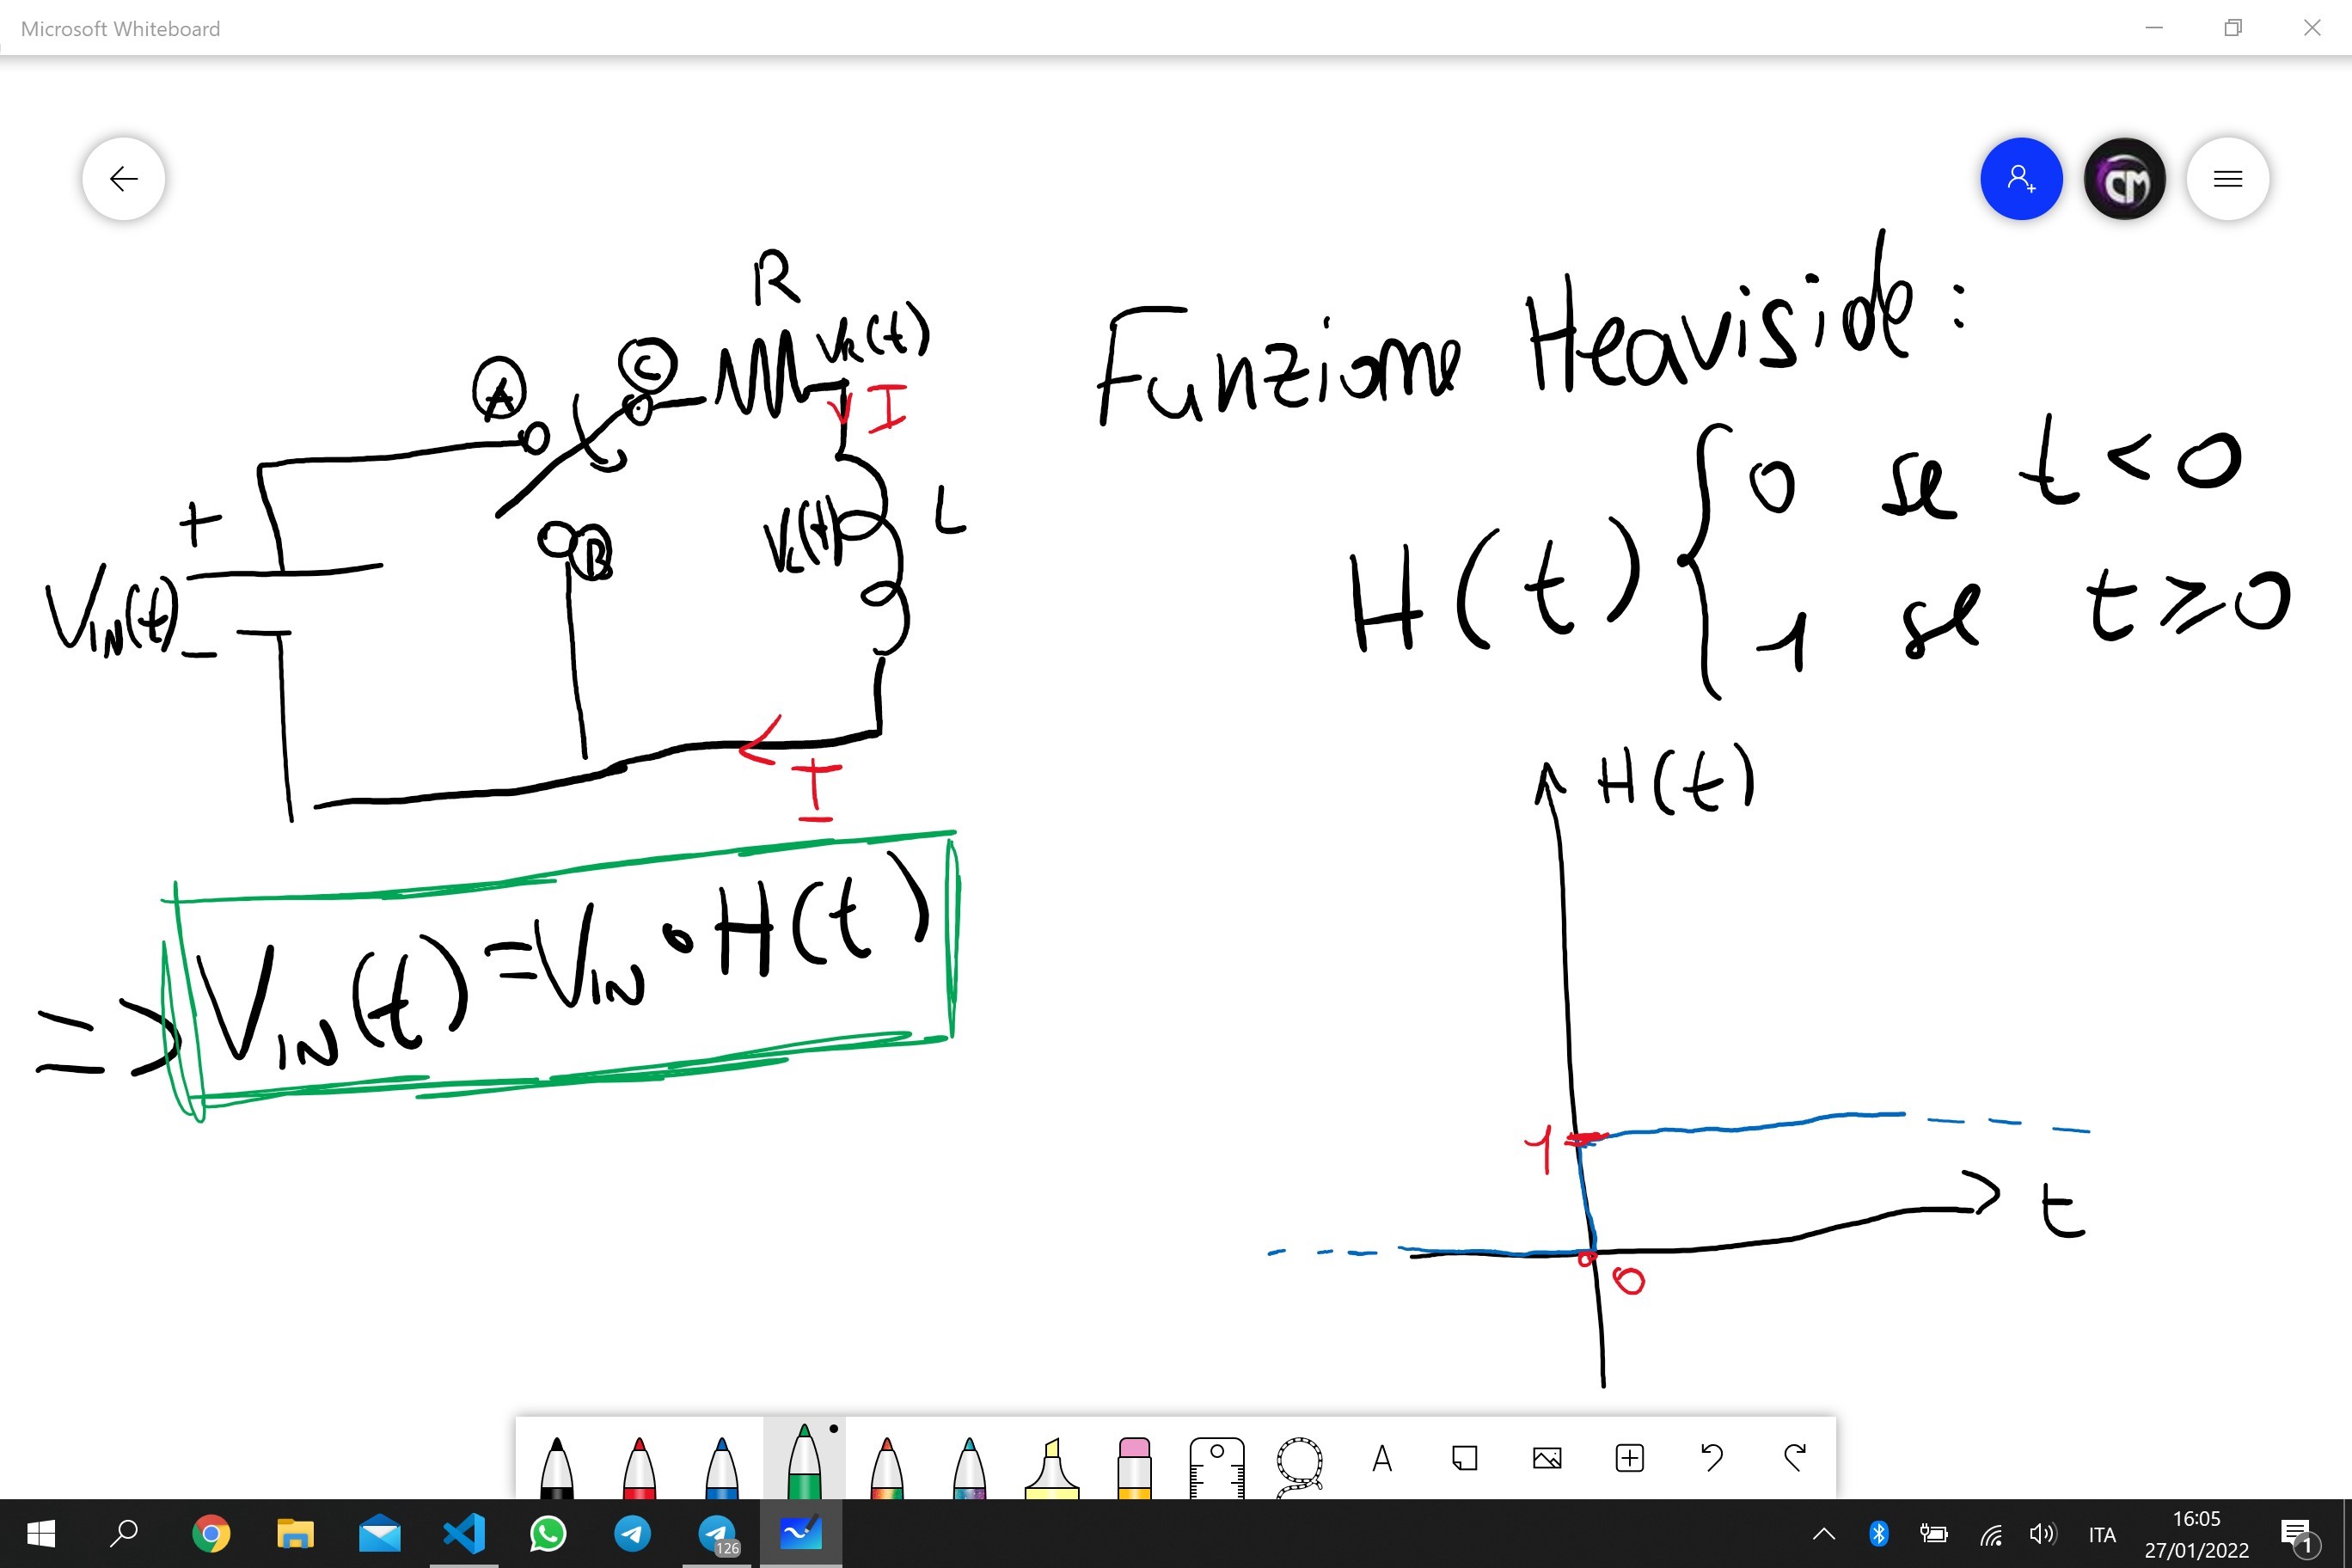 Microsoft Whiteboard
CM
R
VR(t)
I
A
C
B
+
VIN(t)
-
VL(t)
L
I
=> VIN(t)=VIN•H(t)
Funzione Heaviside:
H(t) {
0 se t<0
1 se t≥0
H(t)
1
0
t
A
126
ITA
16:05
27/01/2022
1